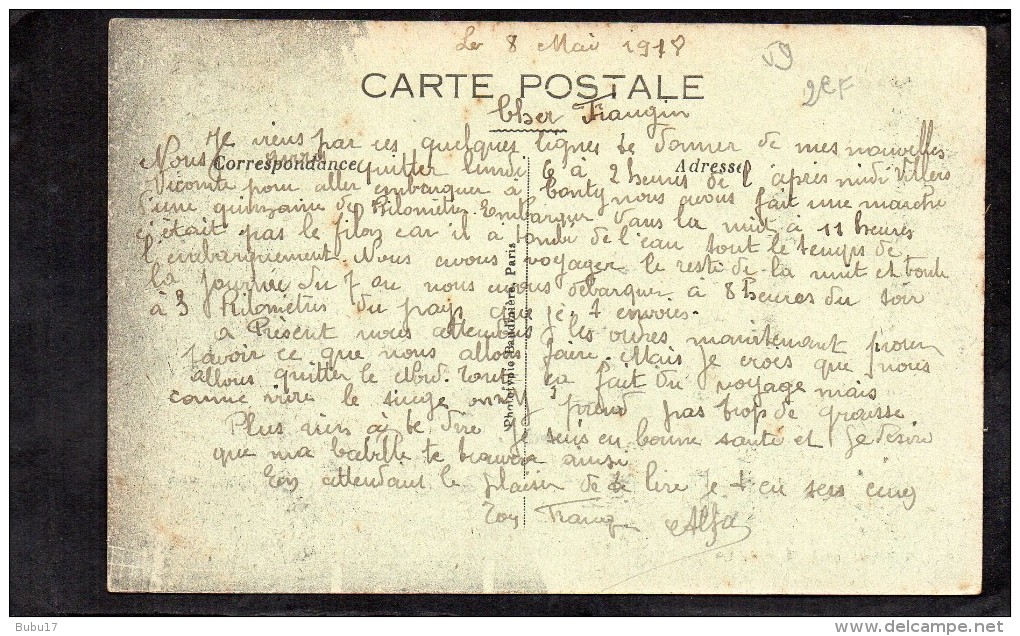 Le 8 Mai 1918
CARTE POSTALE
Cher Frangin
Je viens par ces quelques lignes te donner de mes nouvelles
Correspondance
Adresse
Nous avons quitter lundi 6 à 2 heures de l'après midi Villers
Vicomte pour aller embarquer à Conty nous avons fait une marche
d'une quinzaine de Kilomètres. Embarquer dans la nuit à 11 heures
c'était pas le filon car il a tombé de l'eau tout le temps de
l'embarquement. Nous avons voyager le reste de la nuit et toute
la journée du 7 ou nous avons débarquer à 8 heures du soir
à 3 Kilomètres du pays que je t envoies.
a Présent nous attendons les ordres maintenant pour
savoir ce que nous allons faire. Mais je crois que nous
allons quitter le Nord. Tout ça fait du voyage mais
comme vivre le singe on n'y prend pas trop de graisse
Plus rien à te dire je suis en bonne santé et je désire
que ma babille te trouvera ainsi
En attendant le plaisir de te lire je t en sers cinq
Ton Frang
Phototypie Baudinière, Paris
Bubu17
delcampe.net